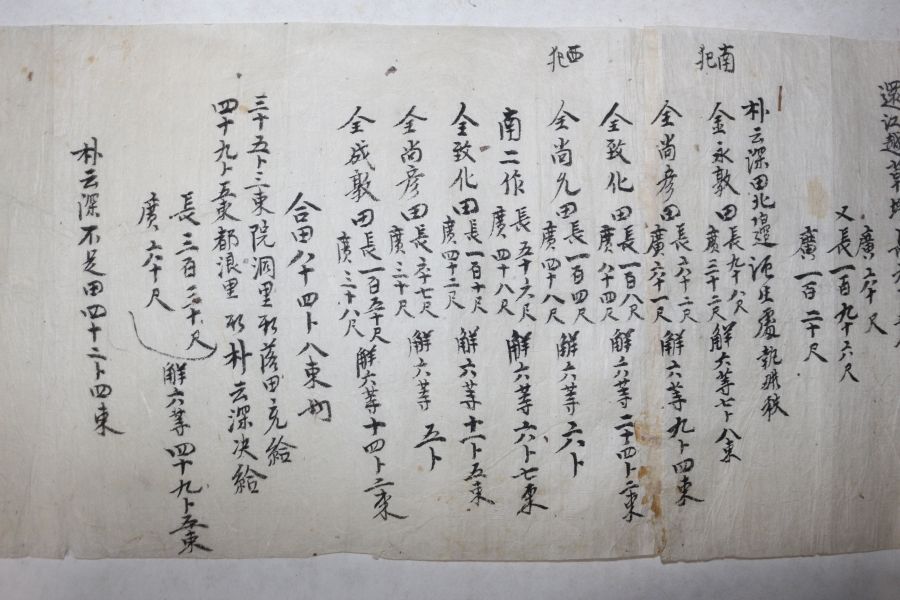 還江越草坪
廣六十尺
又長一百九十六尺
廣一百二十尺
朴云深田北邊
執頉秩
南犯
金永敦田長九十八尺廣二十二尺 解六等七卜八束
全尚彦田長六十二尺廣六十一尺 解六等九卜四束
全致化田長一百八尺廣八十四尺 解六等二十四卜二束
西犯
全尚允田長一百四尺廣四十八尺 解六等六卜
南二作長五十六尺廣四十八尺 解六等六卜七束
全致化田長一百十尺廣四十二尺 解六等十一卜五束
全尚彦田長六十七尺廣三十尺 解六等五卜
全成敦田長一百五十尺廣三十八尺 解六等十四卜二束
合田八十四卜八束
三十五卜三束院洞里 落田充給
四十九卜五束都浪里 朴云深决給
長三百三十尺
廣六十尺
解六等四十九卜五束
朴云深不足田四十二卜四束